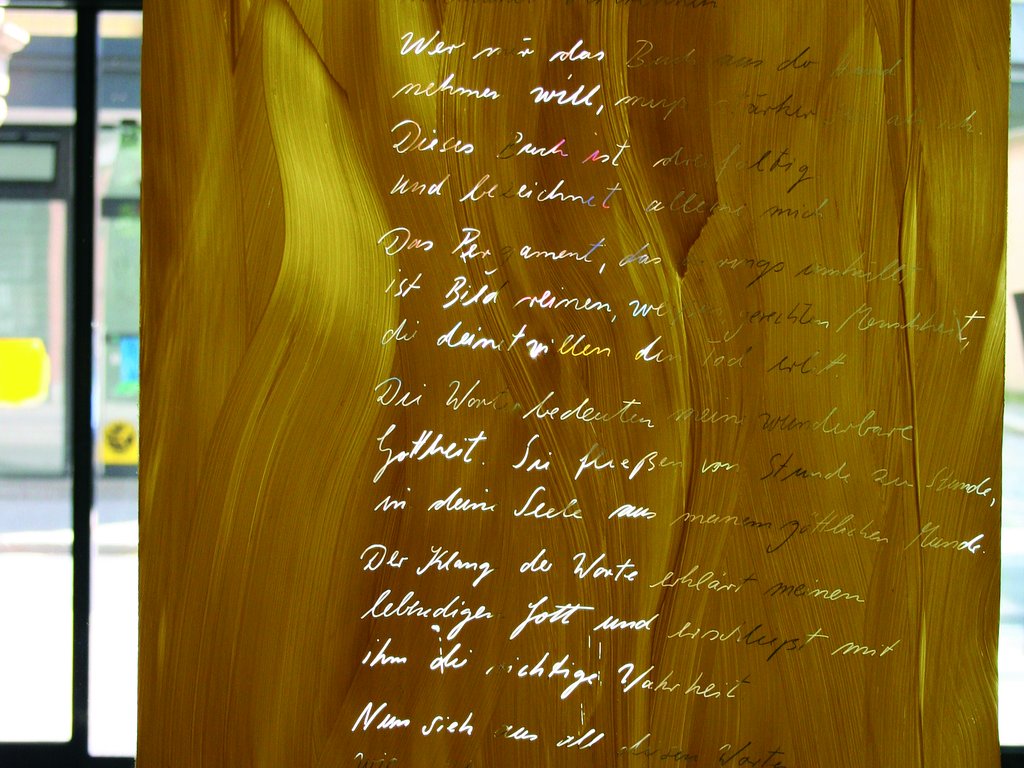 verbrennen
Wer mir das Buch aus der Hand
nehmen will, muß stärker sein als ich.
Dieses Buch ist dreifaltig
und bezeichnet alleine mich
Das Pergament, das rings umhüllt,
ist Bild reinen, weißen gerechten Menschheit,
die deinetwillen den Tod erlitt
Die Worte bedeuten meine wunderbare
Gottheit. Sie fließen von Stunde zu Stunde,
in deine Seele aus meinem göttlichen Munde.
Der Klang der Worte erklärt meinen
lebendigen Gott und erschließt mit
ihm die richtige Wahrheit
Nun sieh aus all diesen Worten
wie